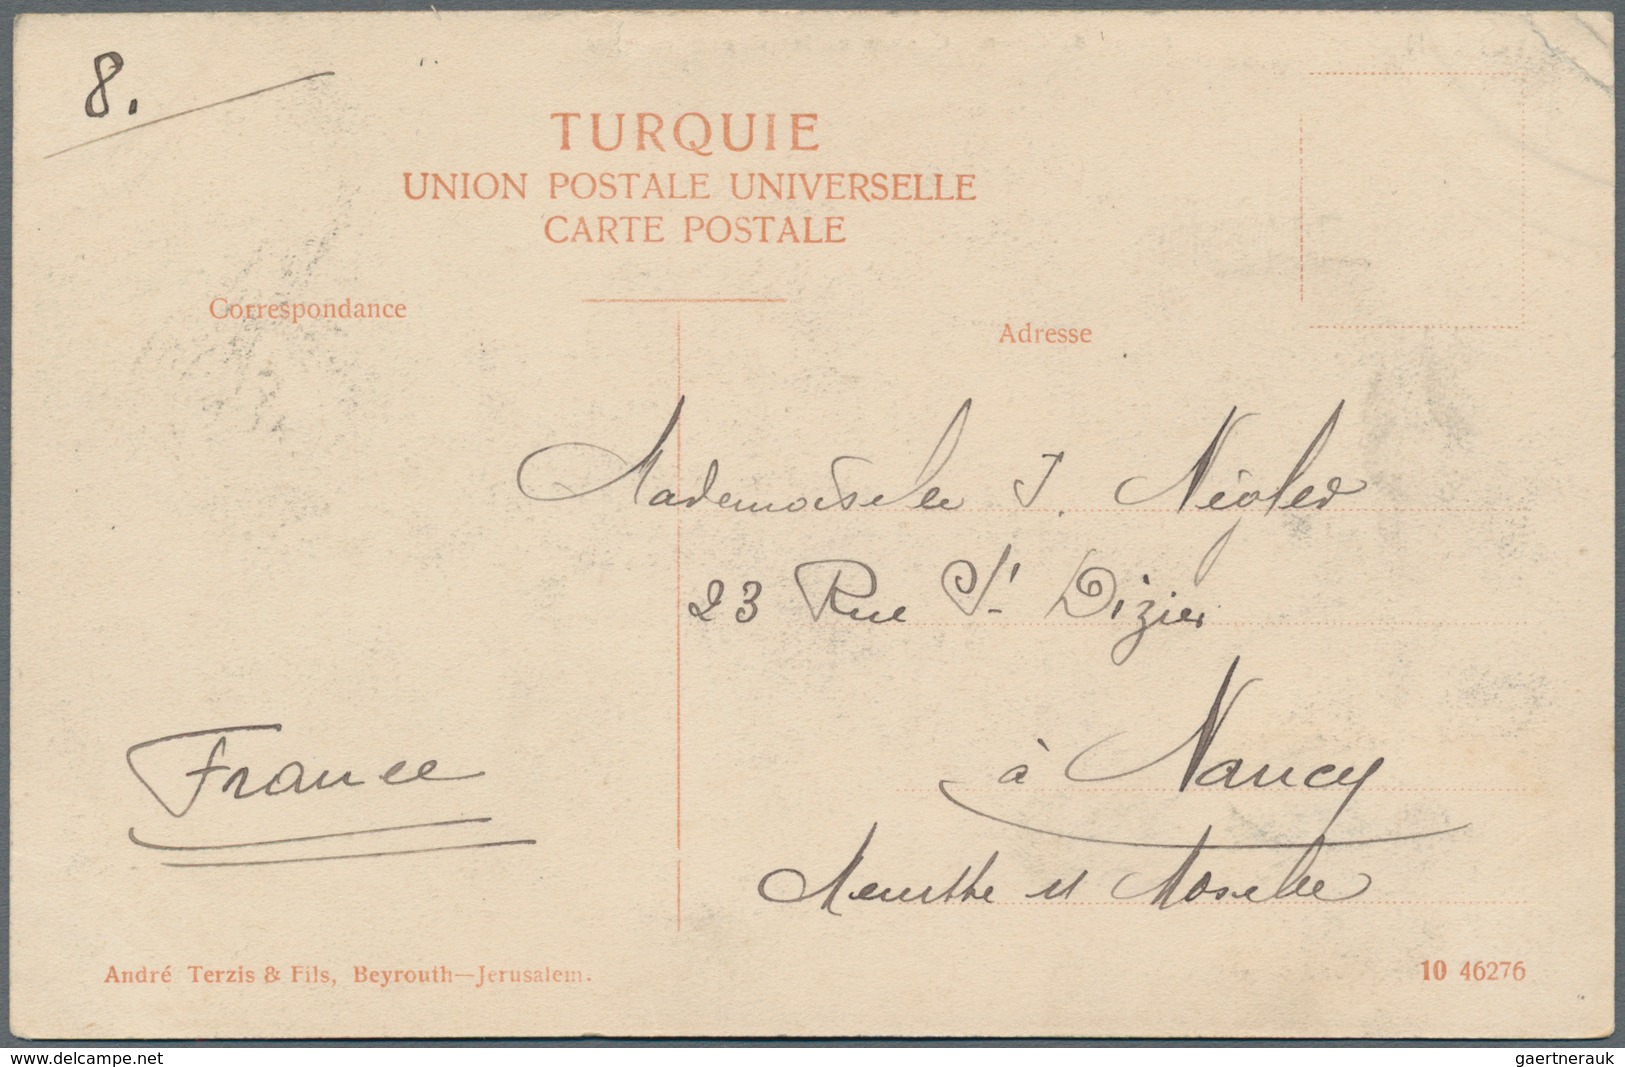 8.
TURQUIE
UNION POSTALE UNIVERSELLE
CARTE POSTALE
Correspondance
Adresse
Mademoiselle J. Négler
23 Rue St Dizier
à Nancy
France
Meurthe et Moselle
André Terzis & Fils, Beyrouth—Jerusalem.
10 46276
www.delcampe.net
gaertnerauk